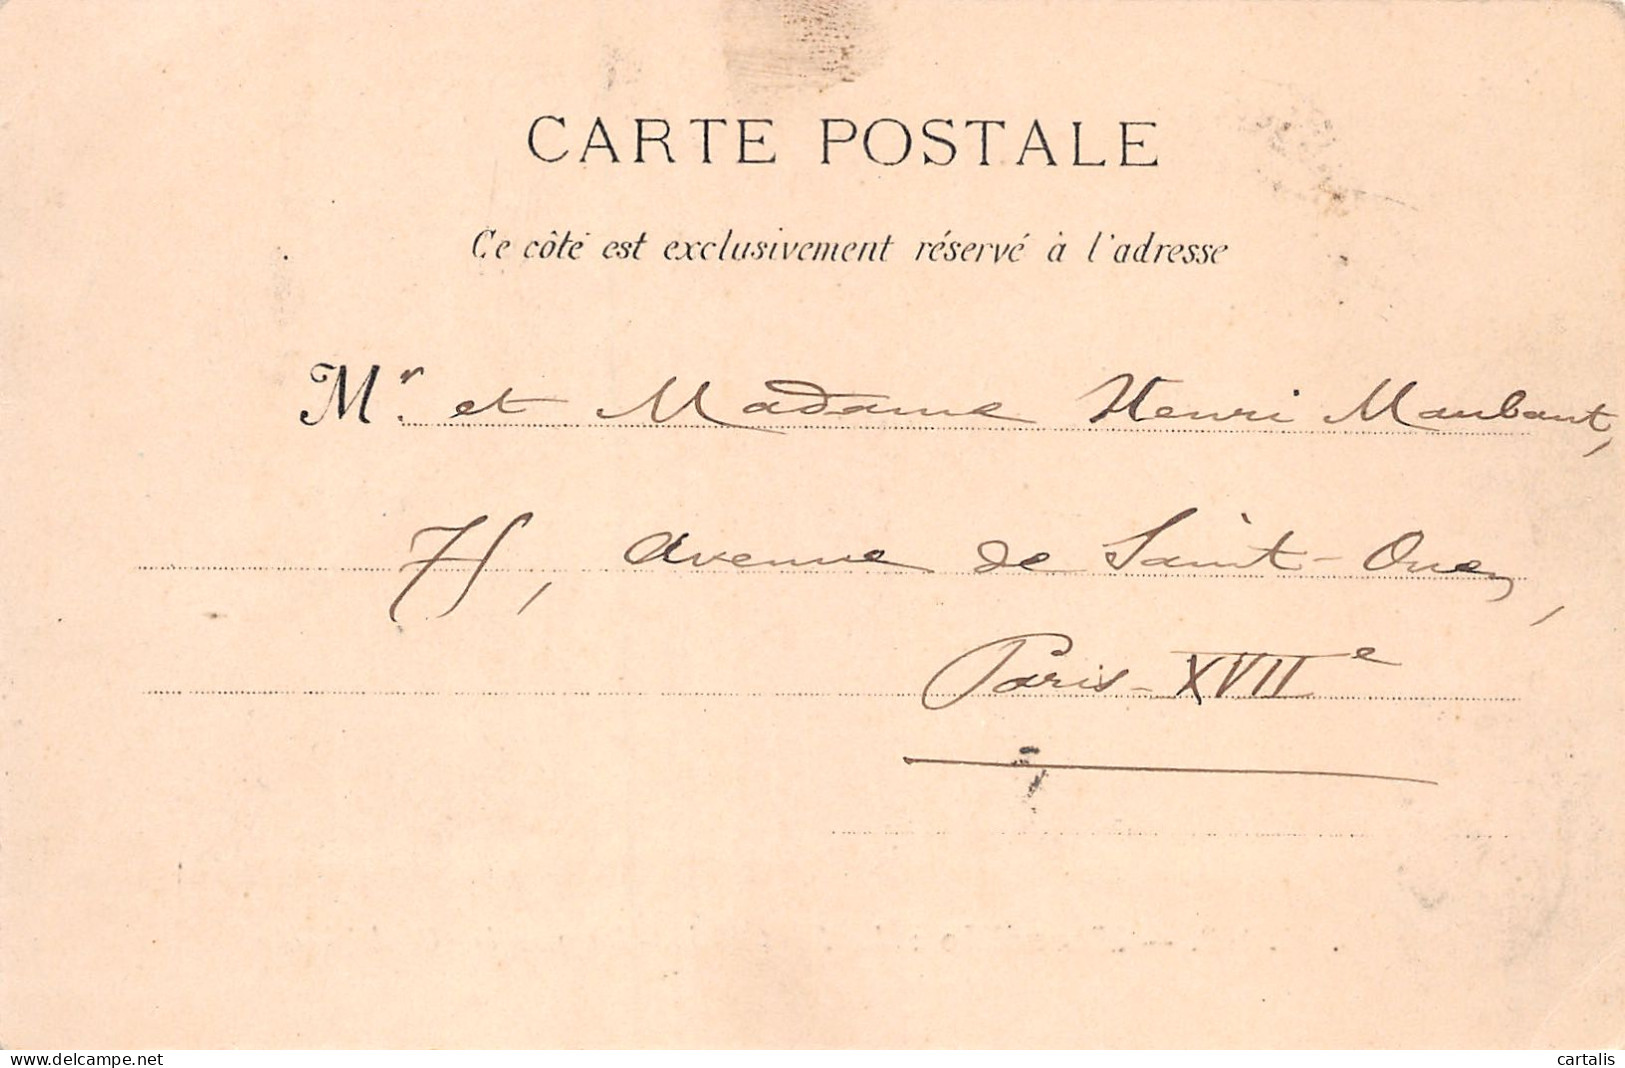 CARTE POSTALE
Ce côté est exclusivement réservé à l'adresse
Mr. et Madame Henri Maubant,
75, Avenue de Saint-Ouen,
Paris - XVIIe
www.delcampe.net
cartalis